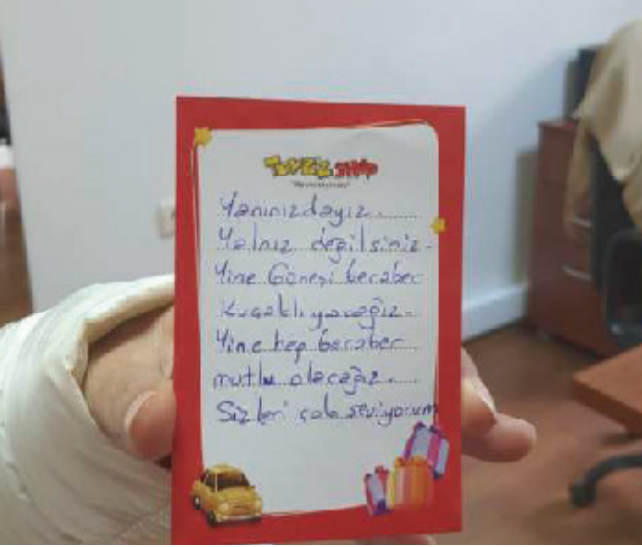 TOYZZ SHOP
Yanınızdayız.......
Yalnız değilsiniz.
Yine Güneşi beraber
Kucaklıyacağız.
Yine hep beraber
mutlu olacağız.....
Sizleri çok seviyorum